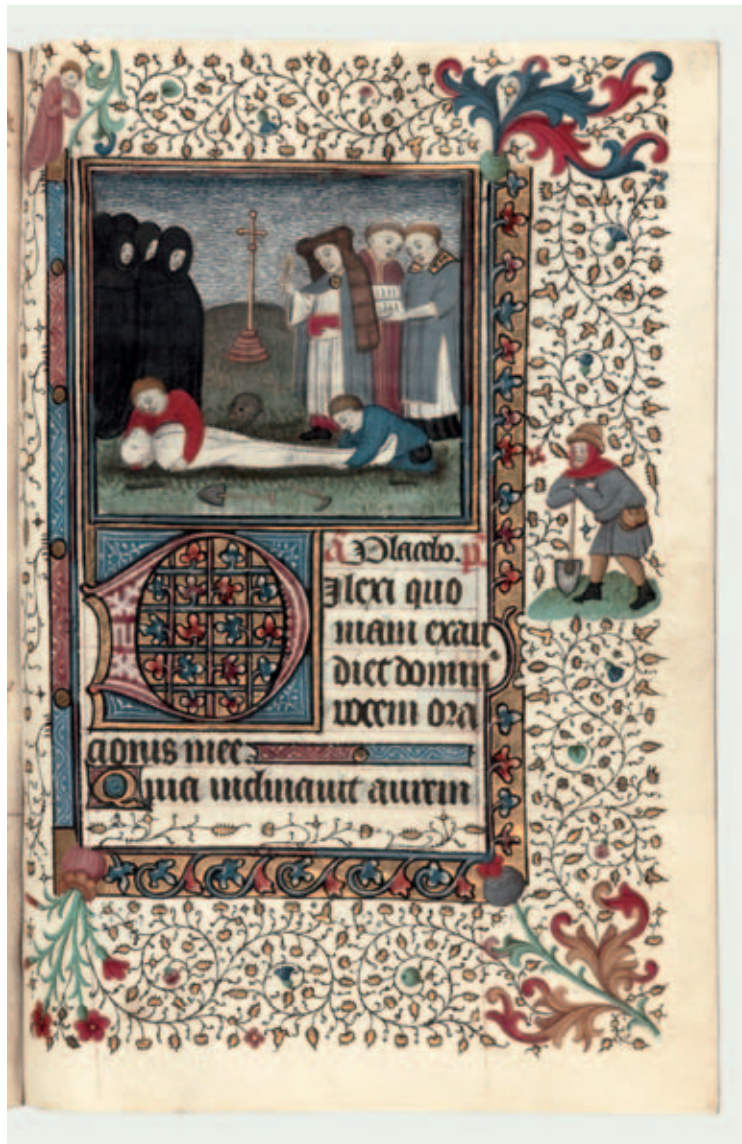 a Placebo. ps
Dilexi quo
niam exau
diet domin'
vocem ora
cionis mee.
Quia inclinavit aurem